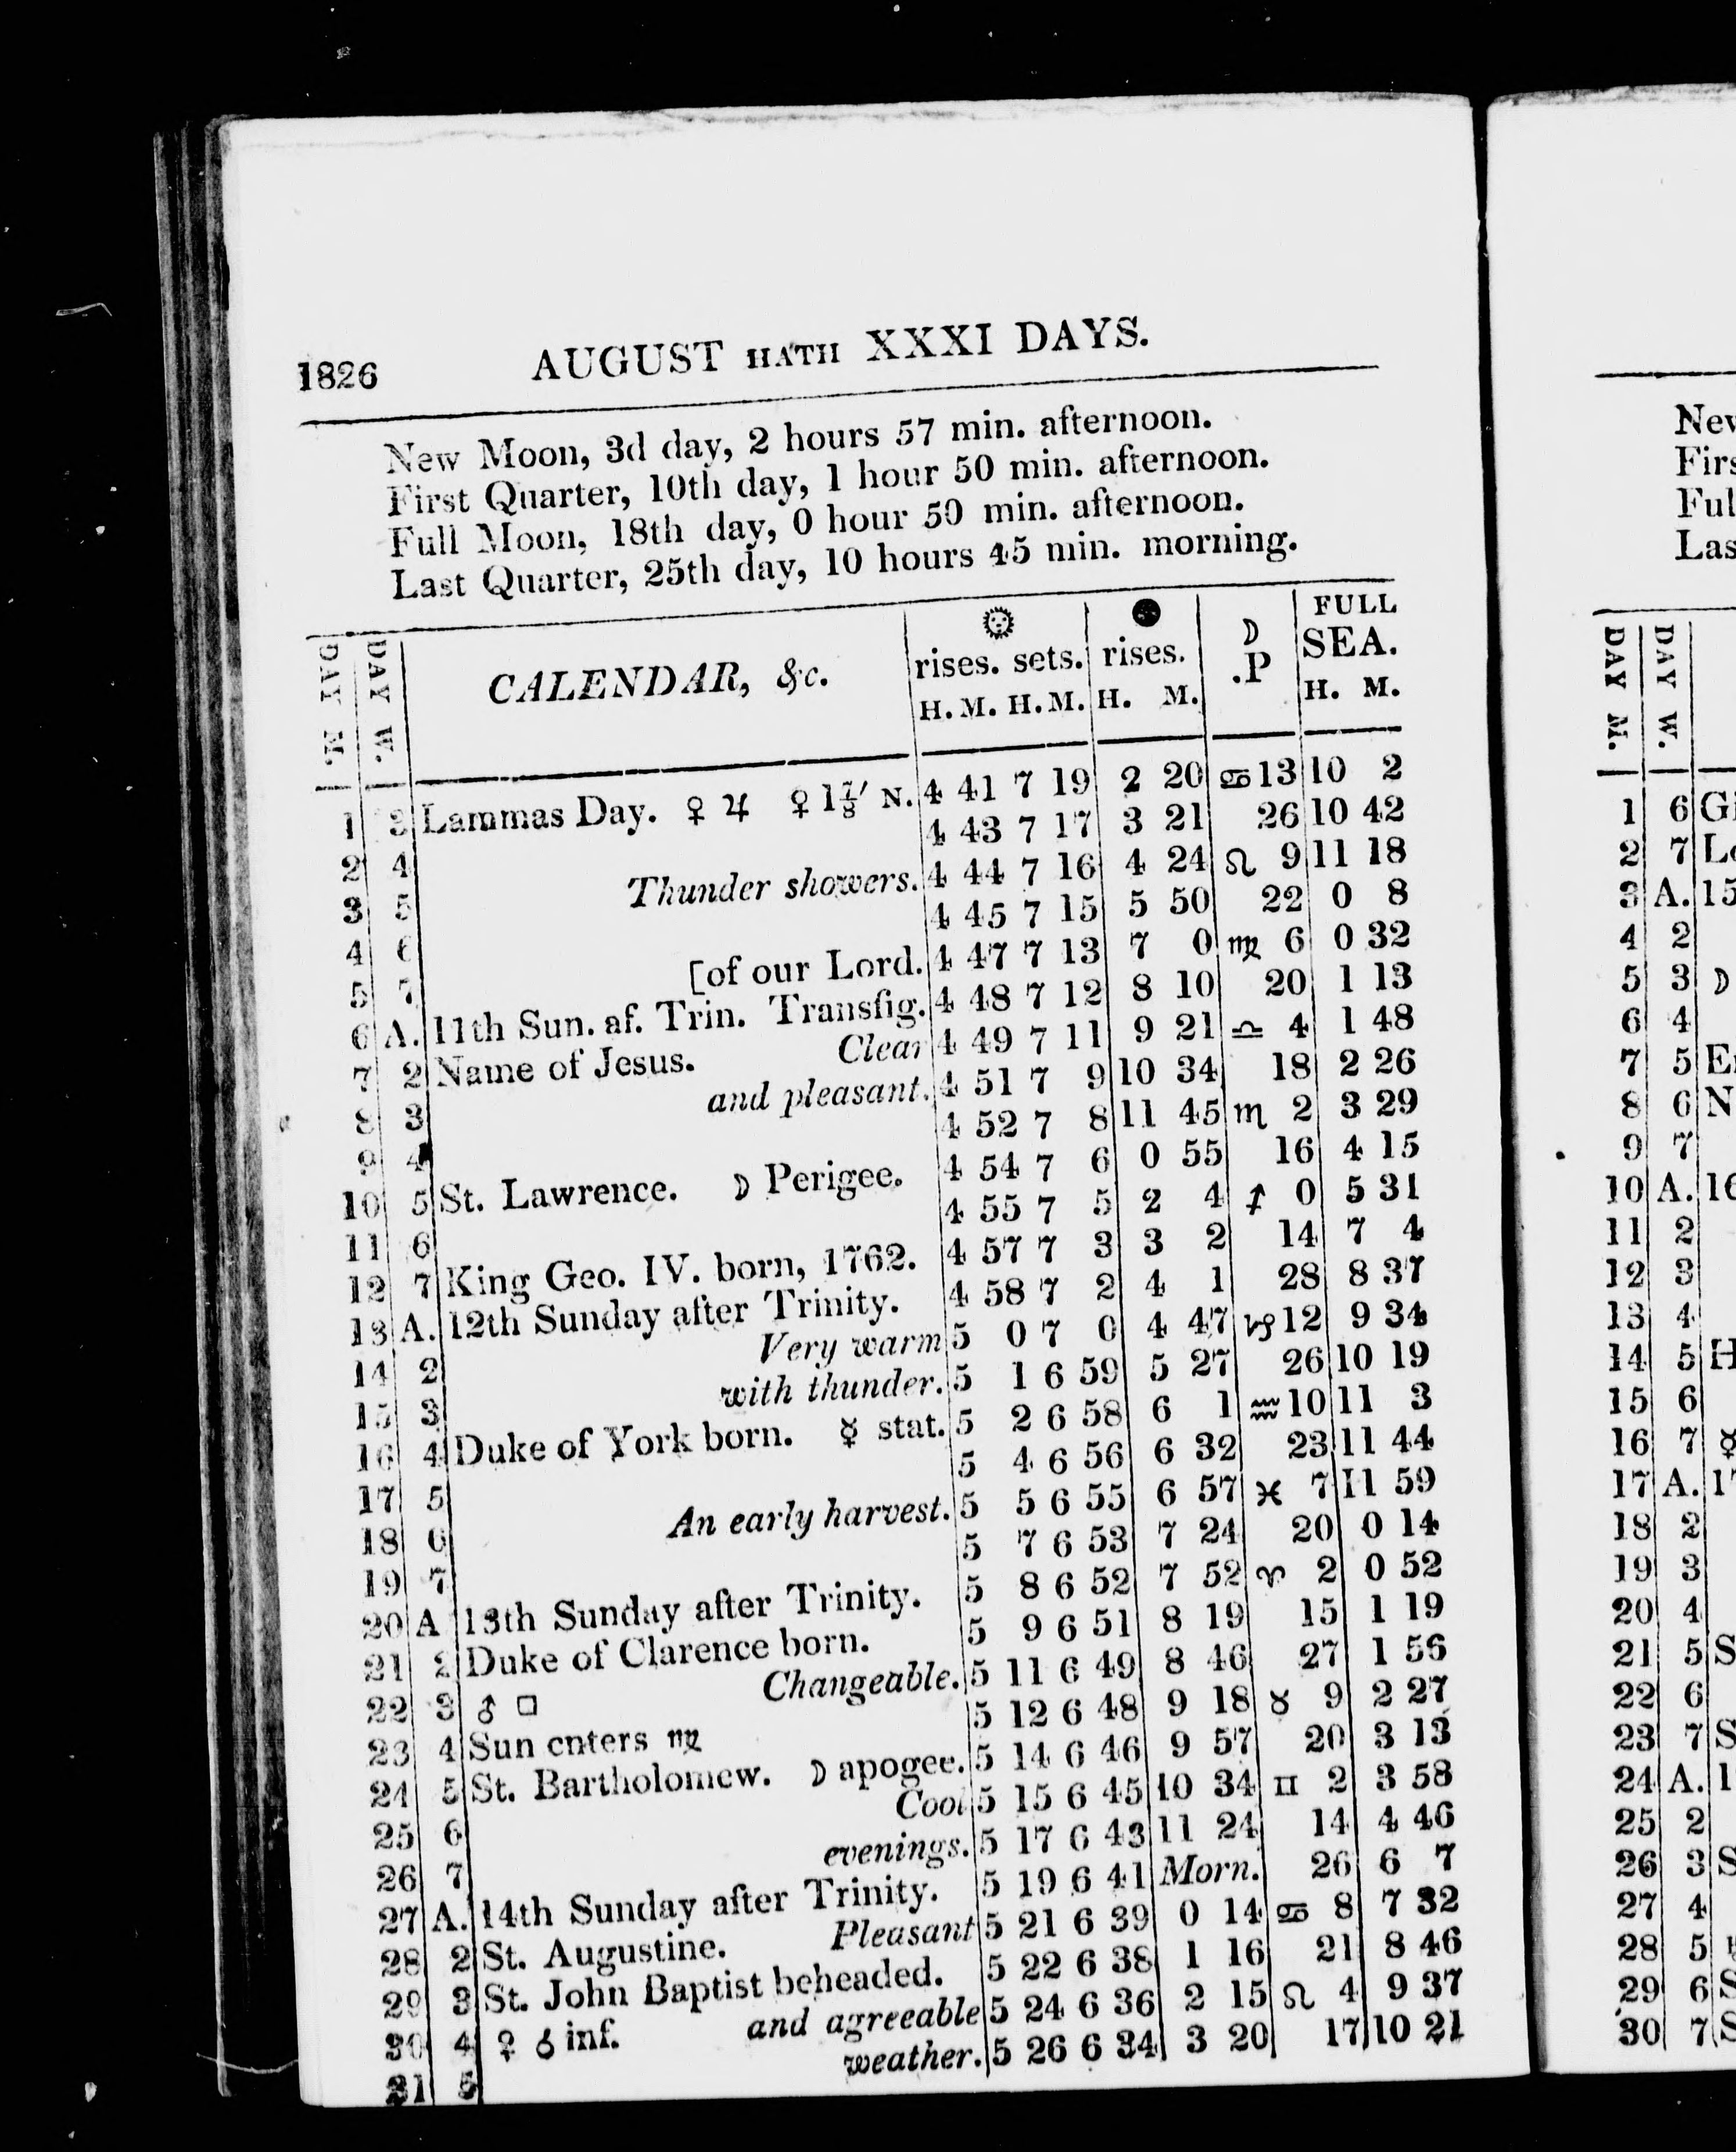 1826 AUGUST HATH XXXI DAYS.
New Moon, 3d day, 2 hours 57 min. afternoon.
First Quarter, 10th day, 1 hour 50 min. afternoon.
Full Moon, 18th day, 0 hour 50 min. afternoon.
Last Quarter, 25th day, 10 hours 45 min. morning.
DAY M. DAY W. CALENDAR, &c. ☉ rises. sets. ● rises. ☽ .P FULL SEA.
H. M. H. M. H. M. H. M.
1 3 Lammas Day. ♀ ♃ ♀ 1⅞′ N. 4 41 7 19 2 20 ♋ 13 10 2
2 4 4 43 7 17 3 21 26 10 42
3 5 Thunder showers. 4 44 7 16 4 24 ♌ 9 11 18
4 6 4 45 7 15 5 50 22 0 8
5 7 [of our Lord. 4 47 7 13 7 0 ♍ 6 0 32
6 A. 11th Sun. af. Trin. Transfig. 4 48 7 12 8 10 20 1 13
7 2 Name of Jesus. Clear 4 49 7 11 9 21 ♎ 4 1 48
8 3 and pleasant. 4 51 7 9 10 34 18 2 26
9 4 4 52 7 8 11 45 ♏ 2 3 29
10 5 St. Lawrence. ☽ Perigee. 4 54 7 6 0 55 16 4 15
11 6 4 55 7 5 2 4 ♐ 0 5 31
12 7 King Geo. IV. born, 1762. 4 57 7 3 3 2 14 7 4
13 A. 12th Sunday after Trinity. 4 58 7 2 4 1 28 8 37
14 2 Very warm 5 0 7 0 4 47 ♑ 12 9 34
15 3 with thunder. 5 1 6 59 5 27 26 10 19
16 4 Duke of York born. ☿ stat. 5 2 6 58 6 1 ♒ 10 11 3
17 5 5 4 6 56 6 32 23 11 44
18 6 An early harvest. 5 5 6 55 6 57 ♓ 7 11 59
19 7 5 7 6 53 7 24 20 0 14
20 A 13th Sunday after Trinity. 5 8 6 52 7 52 ♈ 2 0 52
21 2 Duke of Clarence born. 5 9 6 51 8 19 15 1 19
22 3 ♂ □ Changeable. 5 11 6 49 8 46 27 1 56
23 4 Sun enters ♍ 5 12 6 48 9 18 ♉ 9 2 27
24 5 St. Bartholomew. ☽ apogee. 5 14 6 46 9 57 20 3 13
25 6 Cool 5 15 6 45 10 34 ♊ 2 3 58
26 7 evenings. 5 17 6 43 11 24 14 4 46
27 A. 14th Sunday after Trinity. 5 19 6 41 Morn. 26 6 7
28 2 St. Augustine. Pleasant 5 21 6 39 0 14 ♋ 8 7 32
29 3 St. John Baptist beheaded. 5 22 6 38 1 16 21 8 46
30 4 ♀ ☌ inf. and agreeable 5 24 6 36 2 15 ♌ 4 9 37
31 5 weather. 5 26 6 34 3 20 17 10 21
New
Firs
Ful
Las
DAY M. DAY W.
1 6 Gi
2 7 Lo
3 A. 15
4 2
5 3 ☽
6 4
7 5 En
8 6 N
9 7
10 A. 16
11 2
12 3
13 4
14 5 H
15 6
16 7 ☿
17 A. 17
18 2
19 3
20 4
21 5 S
22 6
23 7 S
24 A. 1
25 2
26 3 S
27 4
28 5
29 6 S
30 7 S